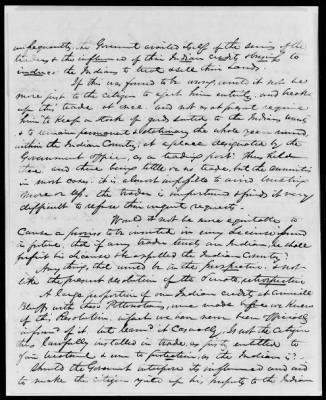 unfrequently, the Government availed itself of the service of the
traders & the influence of their Indian credits & to
induce the Indians to treat & sell their Lands.
If this was found to be wrong, would it not be
more just to the citizen to eject him entirely, and break
up this trade at once. and not as at present require
him to keep a stock of goods suited to the Indians wants
& to remain permanent & stationary the whole year round,
within the Indian Country, at a place designated by the
Government officer, as a trading post. Thus held
there, and there being little or no trade, but the annuities
in most cases. it is almost impossible to avoid trusting
more or less, the trader is importuned & finds it very
difficult to refuse their urgent requests.
Would it not be more equitable to
cause a proviso to be inserted in every License issued
in future, that if any trader trusts an Indian, he shall
forfeit his License & be expelled the Indian Country?
Any thing, that would be in the prospective, & not
like the present resolution of the Senate, retrospective
A large proportion of our Indian credits, at Council
Bluffs with the Pottawatomies, were made before we knew
of this Resolution. in fact we have never been officially
informed of it, but learn'd it casually. Is not the Citizen
thus lawfully installed in trade, as justly entitled to
fair treatment & even to protection, as the Indian is?
Should the Government interpose its influence and aid
to make the citizen of his property to the Indian